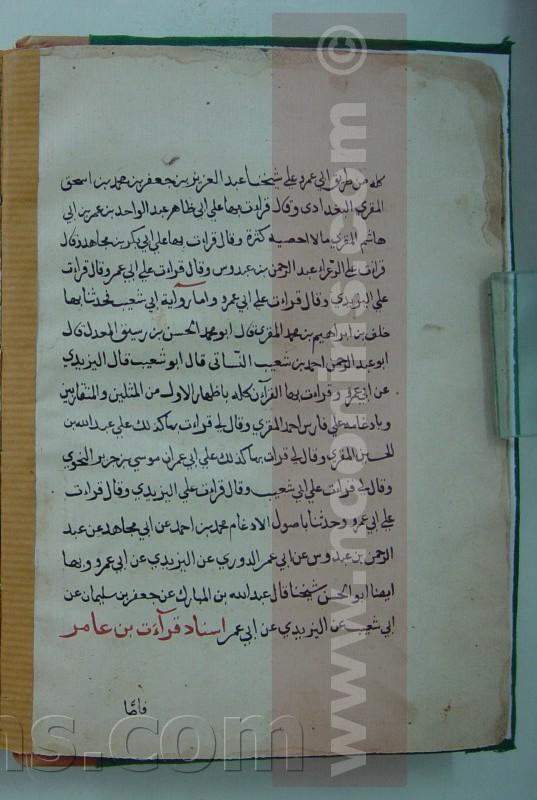 كله من طريق ابي عمرو على شيخنا عبد العزيز بن جعفر بن محمد بن اسحق
المقري البغدادي وقال قرات بها على ابي طاهر عبد الواحد بن عمر بن ابي
هاشم المقري مالا احصيه كثرة وقال قرات بها على ابي بكر بن مجاهد وقال
قرات على ابي الزعراء عبد الرحمن بن عبدوس وقال قرات على ابي عمر وقال قرات
على اليزيدي وقال قرات على ابي عمرو واما رواية ابي شعيب فحدثنا بها
خلف بن ابراهيم بن محمد المقري قال ابو محمد الحسن بن رسيق المعدل قال
ابو عبد الرحمن احمد بن شعيب النسائي قال ابو شعيب قال اليزيدي
عن ابي عمرو وقرات بها القرآن كله باظهار الاول من المثلين والمتقاربين
وبادغامه على فارس احمد المقري وقال لي قراءت بها كذلك على عبد الله بن
الحسين المقري وقال لي قرات بها كذلك على ابي عمران موسى بن جرير النحوي
وقال لي قرات على ابي شعيب وقال قرات على اليزيدي وقال قرات
على ابي عمرو وحدثنا باصول الادغام محمد بن احمد عن ابي مجاهد عن عبد
الرحمن بن عبدوس عن ابي عمر الدوري عن اليزيدي عن ابي عمرو وبها
ايضا ابو الحسن شيخنا قال عبد الله بن المبارك عن جعفر بن سليمان عن
ابي شعيب عن اليزيدي عن ابي عمر اسناد قرآءت بن عامر
فاما
www.noorlns.com ©
ns.com